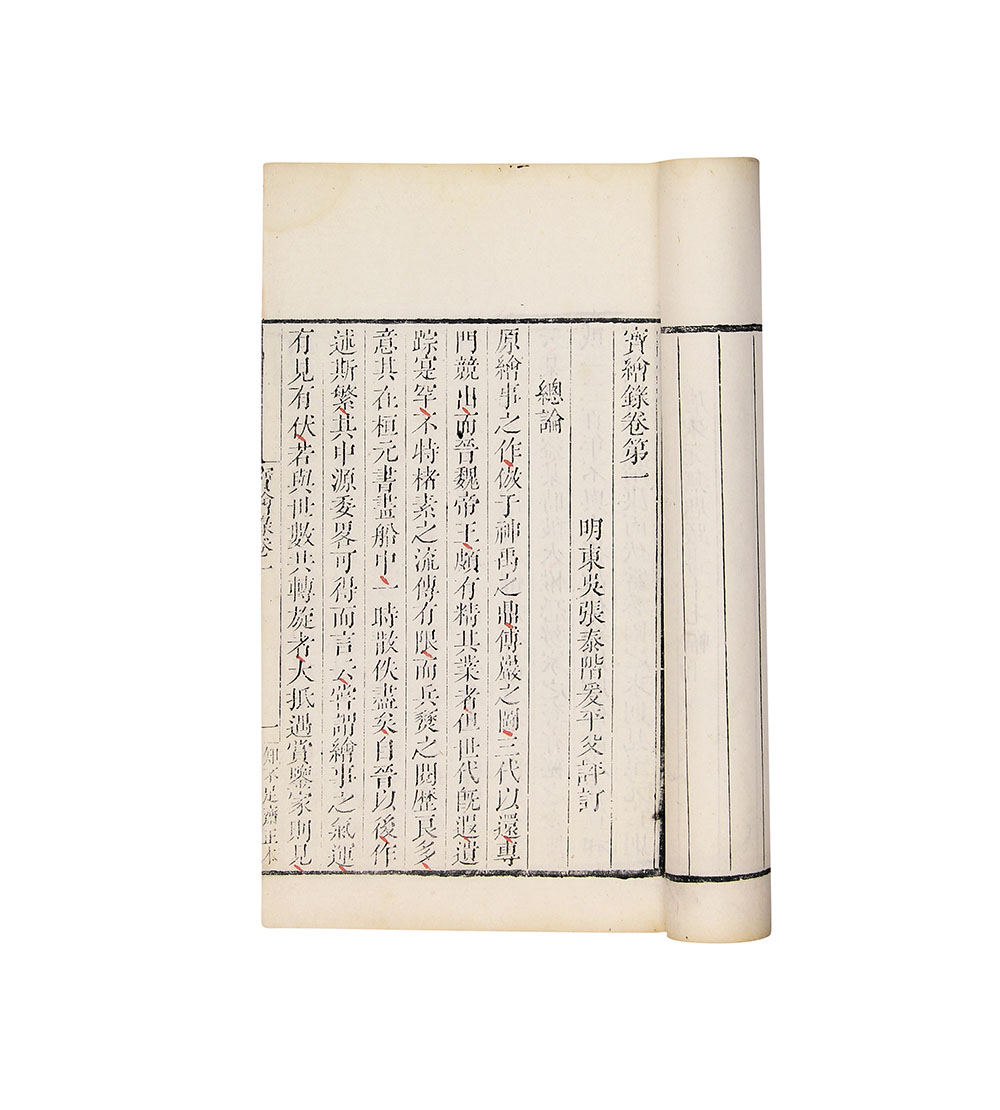 寳繪錄卷第一
明東吳張泰階爰平父評訂
總論
原繪事之作倣于神禹之鼎傅巖之圖三代以還專
門競出而晉魏帝王頗有精其業者但世代旣遐遺
踪寔罕不特楮素之流傳有限而兵燹之閱歷良多
意其在桓元書畫船中一時散佚盡矣自晉以後作
述斯繁其中源委畧可得而言云嘗謂繪事之氣運
有見有伏若與世數共轉旋者大抵遇賞鑒家則見
寳繪錄卷一
一
知不足齋正本